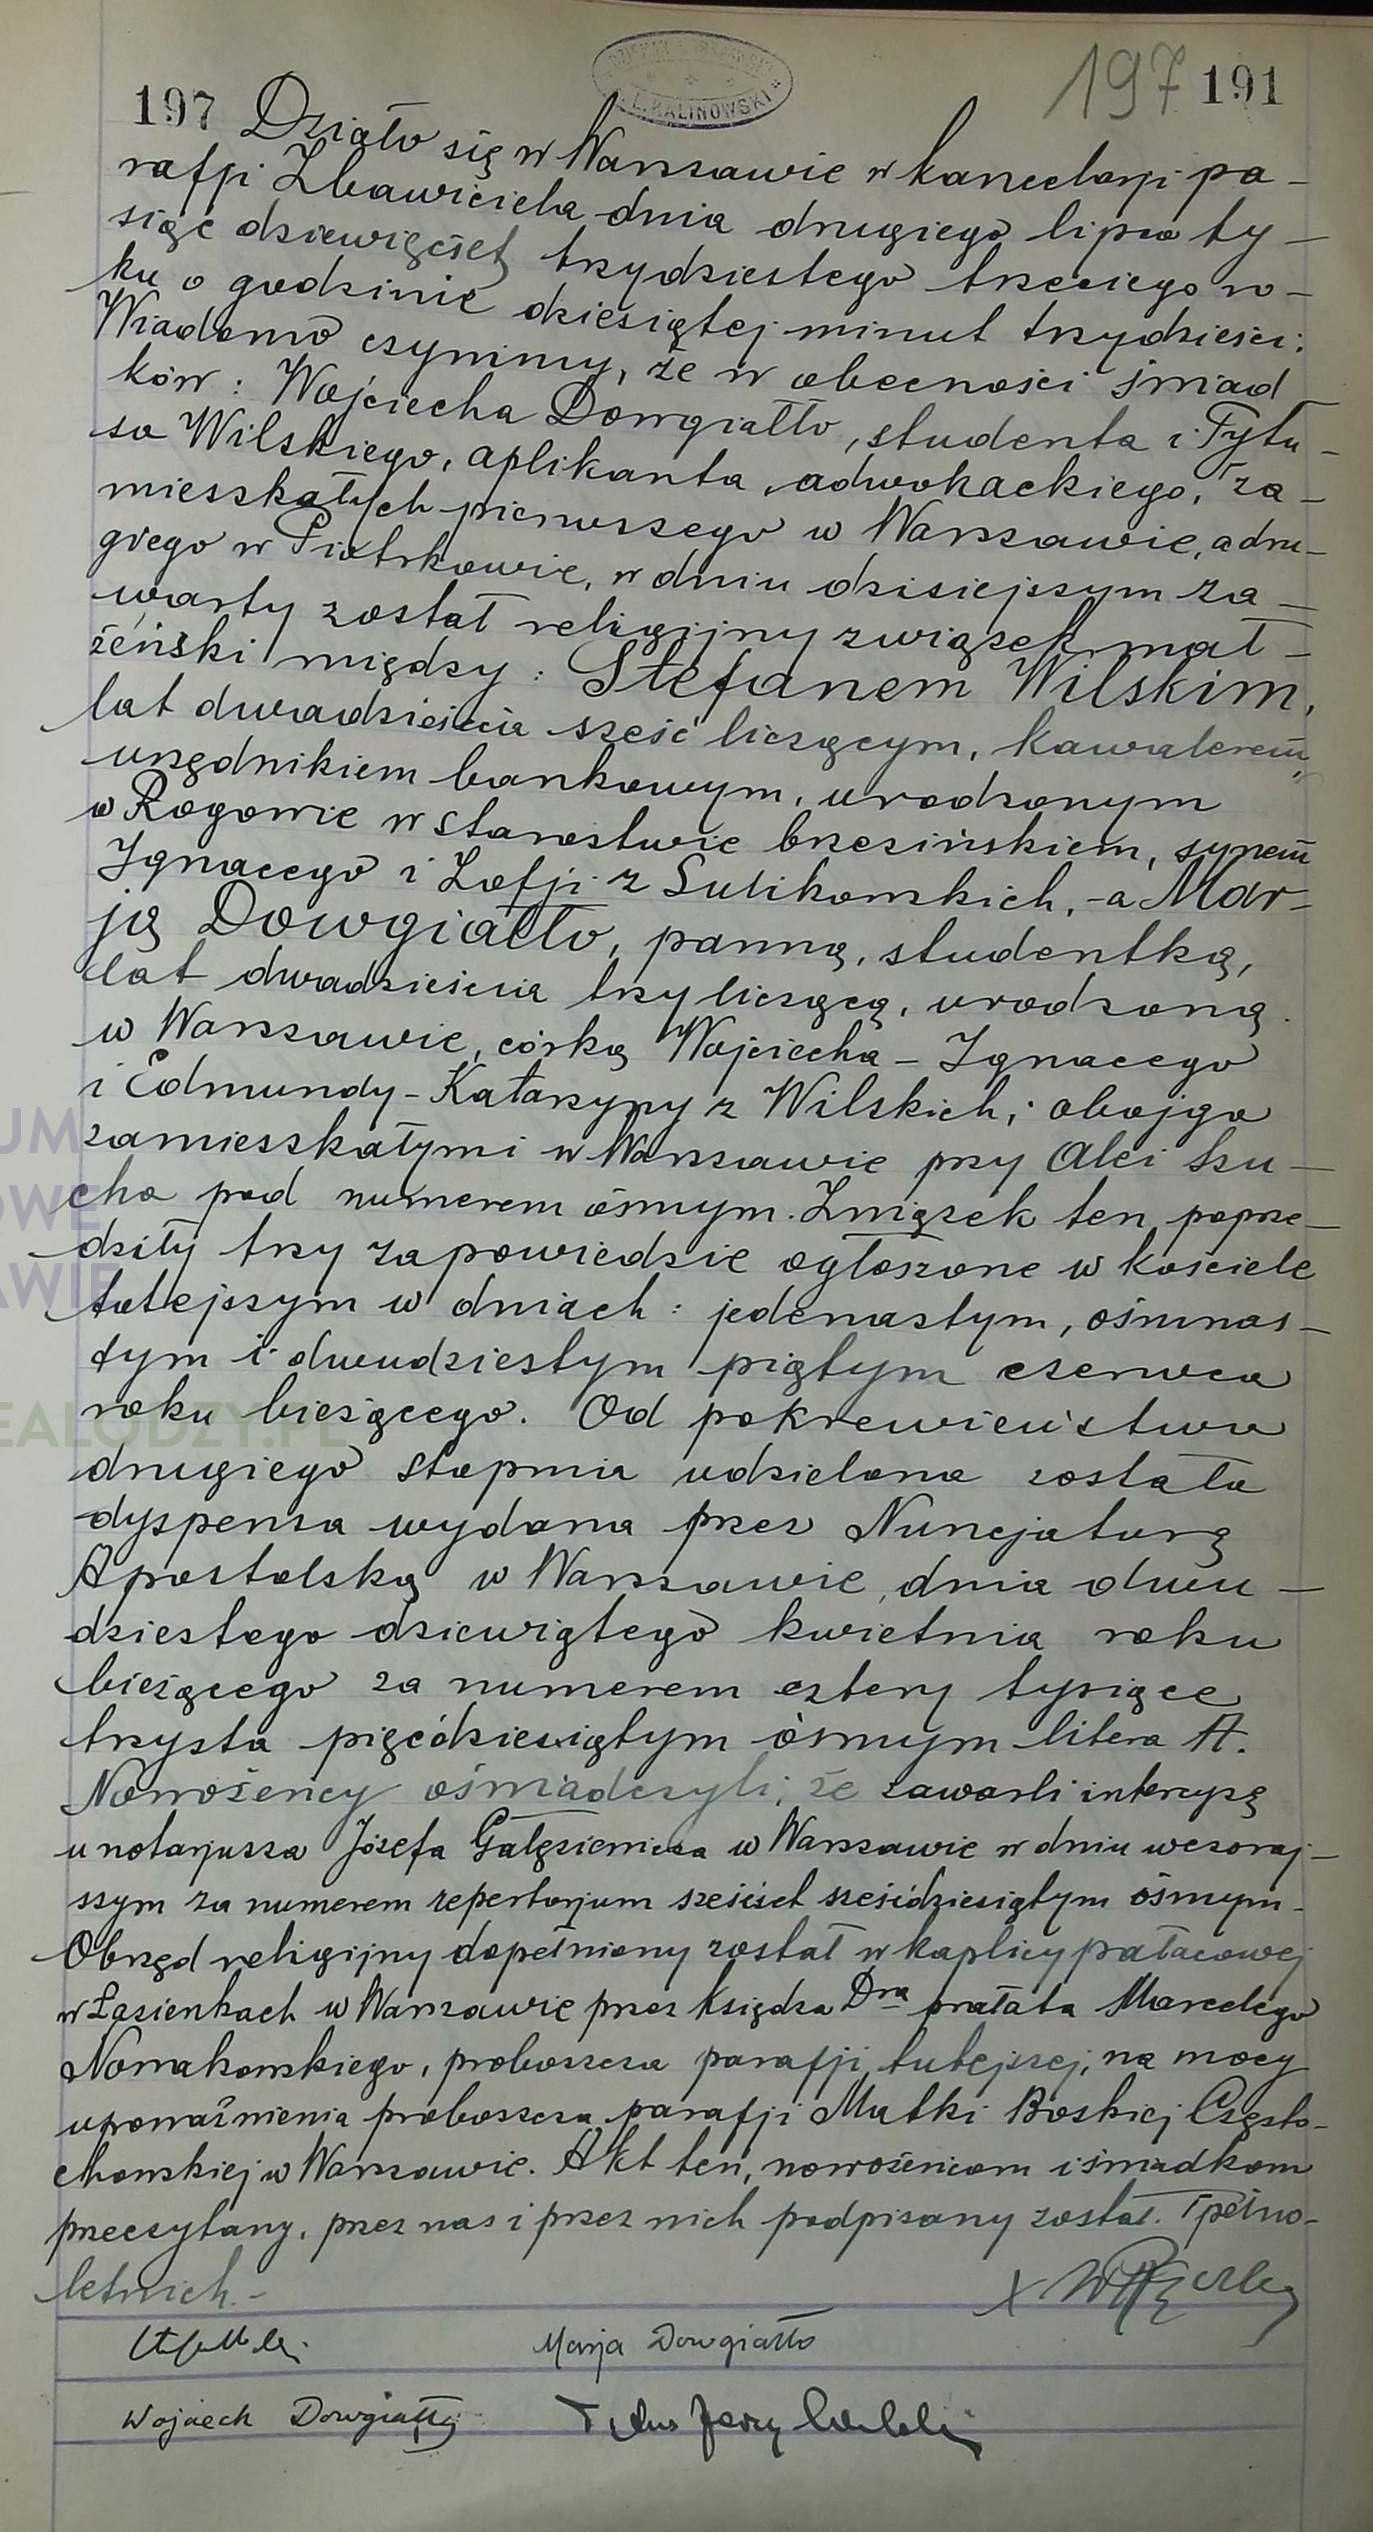 197 191
197 Działo się w Warszawie w kancelarji pa-
rafji Zbawiciela dnia drugiego lipca ty-
siąc dziewięćset trzydziestego trzeciego ro-
ku o godzinie dziesiątej minut trzydzieści:
Wiadomo czynimy, że w obecności świad
ków: Wojciecha Dowgiałło, studenta i Tytu-
sa Wilskiego, aplikanta adwokackiego, za-
mieszkałych pierwszego w Warszawie, a dru-
giego w Piotrkowie, w dniu dzisiejszym za-
warty został religijny związek mał-
żeński między: Stefanem Wilskim,
lat dwadzieścia sześć liczącym, kawalerem,
urzędnikiem bankowym, urodzonym
w Rogowie w starostwie brzezińskiem, synem
Ignacego i Zofji z Sulikowskich, - a Mar-
ją Dowgiałło, panną, studentką,
lat dwadzieścia trzy liczącą, urodzoną
w Warszawie, córką Wojciecha-Ignacego
i Edmundy-Katarzyny z Wilskich; obojga
zamieszkałymi w Warszawie przy Alei Szu-
cha pod numerem ósmym. Związek ten poprze-
dziły trzy zapowiedzie ogłoszone w kościele
tutejszym w dniach: jedenastym, ośmnas-
tym i dwudziestym piątym czerwca
roku bieżącego. Od pokrewieństwa
drugiego stopnia udzielona została
dyspensa wydana przez Nuncjaturę
Apostolską w Warszawie, dnia dwu-
dziestego dziewiątego kwietnia roku
bieżącego za numerem cztery tysiące
trzysta pięćdziesiątym ósmym litera A.
Nowożeńcy oświadczyli, że zawarli intercyzę
u notarjusza Józefa Gałęziewicza w Warszawie w dniu wczoraj-
szym za numerem repertorjum sześćset sześćdziesiątym ósmym.
Obrzęd religijny dopełniony został w kaplicy pałacowej
w Łazienkach w Warszawie przez księdza Dra prałata Marcelego
Nowakowskiego, proboszcza parafji tutejszej, na mocy
upoważnienia proboszcza parafji Matki Boskiej Często-
chowskiej w Warszawie. Akt ten, nowożeńcom i świadkom
przeczytany, przez nas i przez nich podpisany został. I pełno-
letnich.-
Marja Dowgiałło
Wojciech Dowgiałło Tytus Jerzy Wilski
KALINOWSKI
UM
OWE
AWIE
EALODZY.PL